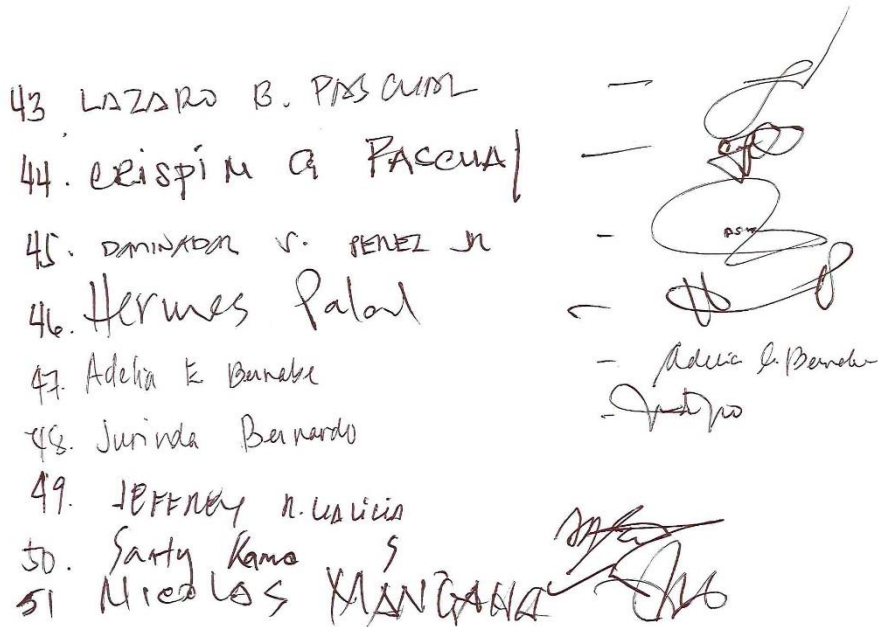 43 LAZARO B. PASCUAL -
44. CRISPIN G PASCUAL -
45. DOMINADOR V. PEREZ JR -
46. Hermes Palad -
47. Adelia E Bernabe - Adelia E. Bernabe
48. Jurinda Bernardo -
49. JEFFREY R.
50. Santy Ramos
51 NICOLAS MANGAHA